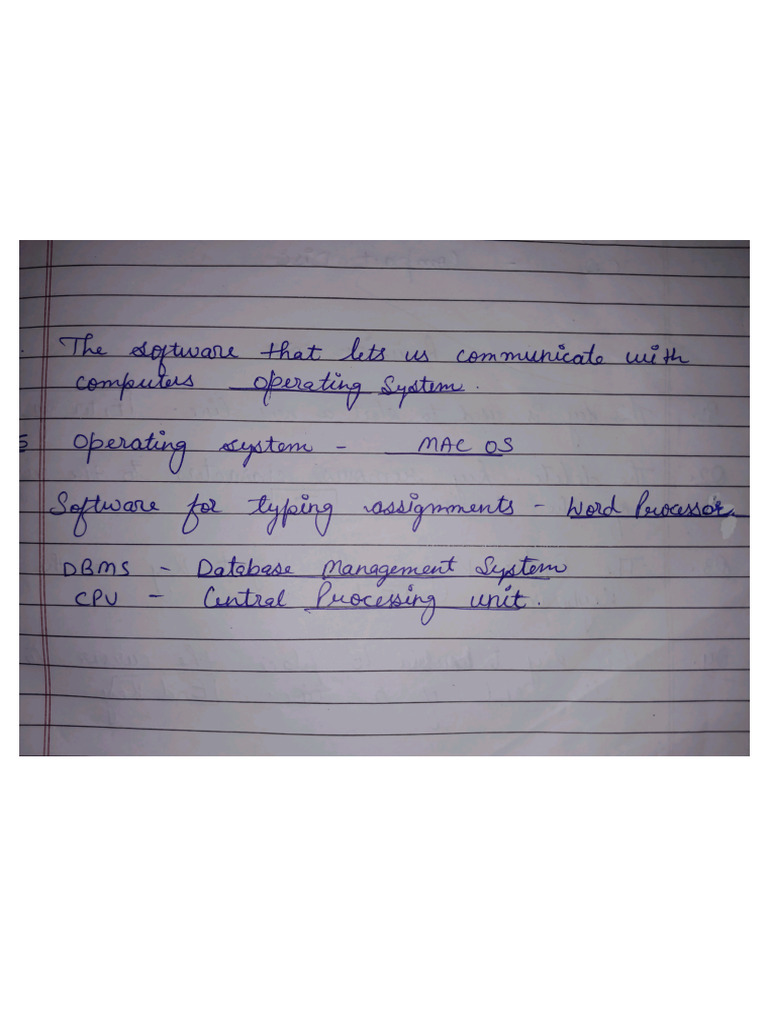 The software that lets us communicate with
computers operating system.
Operating system - MAC OS
Software for typing assignments - Word Processor.
DBMS - Database Management System
CPU - Central Processing unit.